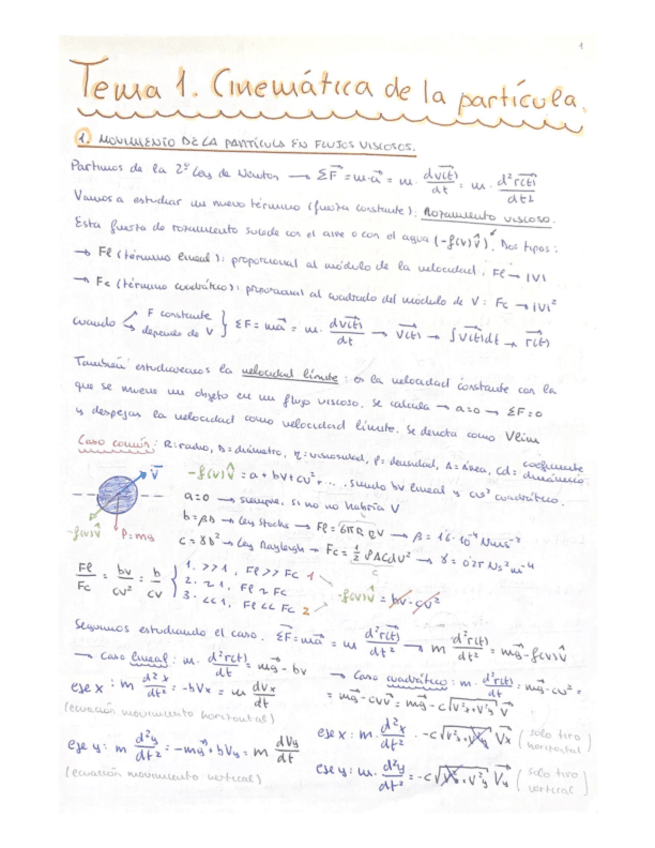 1
Tema 1. Cinemática de la partícula.
1. MOVIMIENTO DE LA PARTÍCULA EN FLUJOS VISCOSOS.
Partimos de la 2º Ley de Newton → ΣF⃗ = m·a⃗ = m · dv⃗(t)/dt = m · d²r⃗(t)/dt²
Vamos a estudiar un nuevo término (fuerza constante): Rozamiento viscoso.
Esta fuerza de rozamiento sucede con el aire o con el agua (-f(v)v̂). Dos tipos:
→ Fl (término lineal): proporcional al módulo de la velocidad. Fl → |V|
→ Fc (término cuadrático): proporcional al cuadrado del módulo de V: Fc → |V|²
cuando F constante
depende de V } ΣF = ma⃗ = m · dv⃗(t)/dt → v⃗(t) → ∫v⃗(t)dt → r⃗(t)
También estudiaremos la velocidad límite: es la velocidad constante con la
que se mueve un objeto en un flujo viscoso. Se calcula → a=0 → ΣF=0
y despejas la velocidad como velocidad límite. Se denota como Vlim
Caso común: R=radio, D=diámetro, η=viscosidad, ρ=densidad, A=área, Cd= coeficiente dinámico
V⃗
-f(v)v̂
P=mg
-f(v)v̂ = a + bv + cv² + ... siendo bv lineal y cv² cuadrático.
a=0 → siempre, si no no habría V
b=βD → Ley Stocks → Fl = 6πRηV → β = 1'6·10⁻⁴ Nsm⁻²
c=γD² → Ley Rayleigh → Fc = 1/2 ρACdV² → γ = 0'25 Ns²m⁻⁴
c
Fl/Fc = bv/cv² = b/cv { 1. >>1, Fl >> Fc 1
2. ≈1, Fl ≈ Fc
3. <<1, Fl << Fc 2
-f(v)v̂ = bv - cv²
Seguimos estudiando el caso. ΣF⃗ = ma⃗ = m d²r⃗(t)/dt² → m d²r⃗(t)/dt² = mg⃗ - f(v)v̂
→ Caso lineal: m · d²r⃗(t)/dt = mg⃗ - bv
eje x: m d²x/dt² = -bVx = m dVx/dt
(ecuación movimiento horizontal)
eje y: m d²y/dt² = -mg⃗ + bVy = m dVy/dt
(ecuación movimiento vertical)
→ Caso cuadrático: m · d²r⃗(t)/dt = mg⃗ - cv² =
= mg⃗ - cvv⃗ = mg⃗ - c√(V²x + V²y) V⃗
eje x: m · d²x/dt² · -c√(V²x + V²y) Vx (solo tiro horizontal)
eje y: m · d²y/dt² = -c√(V²x + V²y) Vy (solo tiro vertical)